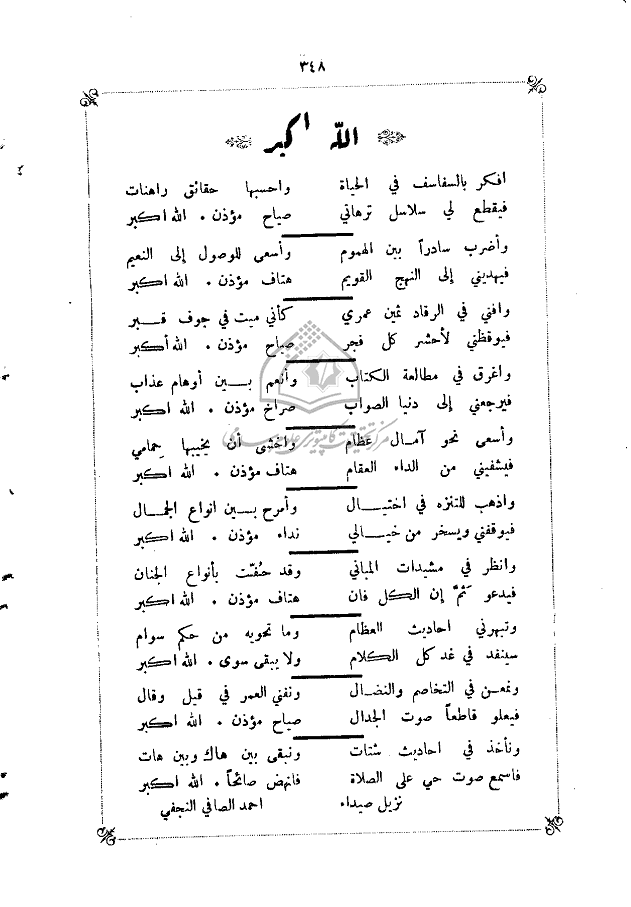 ٣٤٨
الله اكبر
افكر بالسفاسف في الحياة واحسبها حقائق راهنات
فيقطع لي سلاسل ترهاتي صياح مؤذن . الله اكبر
وأضرب سادراً بين الهموم وأسعى للوصول إلى النعيم
فيهديني إلى النهج القويم هتاف مؤذن . الله اكبر
وافني في الرقاد ثمين عمري كأني ميت في جوف قبر
فيوقظني لأحشر كل فجر صياح مؤذن . الله أكبر
واغرق في مطالعة الكتاب وأنعم بين أوهام عذاب
فيرجعني إلى دنيا الصواب صراخ مؤذن . الله اكبر
وأسعى نحو آمال عظام واخشى أن يخيبها حمامي
فيشفيني من الداء العقام هتاف مؤذن . الله اكبر
واذهب للتنزه في اختيال وأمرح بين انواع الجمال
فيوقفني ويسخر من خيالي نداء مؤذن . الله اكبر
وانظر في مشيدات المباني وقد حُفت بأنواع الجنان
فيدعو ثَمَّ إن الكل فان هتاف مؤذن . الله اكبر
وتبهرني احاديث العظام وما تحويه من حكم سوام
سينفد في غد كل الكلام ولا يبقى سوى . الله اكبر
ونمعن في التخاصم والنضال ونفني العمر في قيل وقال
فيعلو قاطعاً صوت الجدال صياح مؤذن . الله اكبر
ونأخذ في احاديث شتات ونبقى بين هاك وبين هات
فاسمع صوت حي على الصلاة فانهض صائحاً . الله اكبر
نزيل صيداء احمد الصافي النجفي